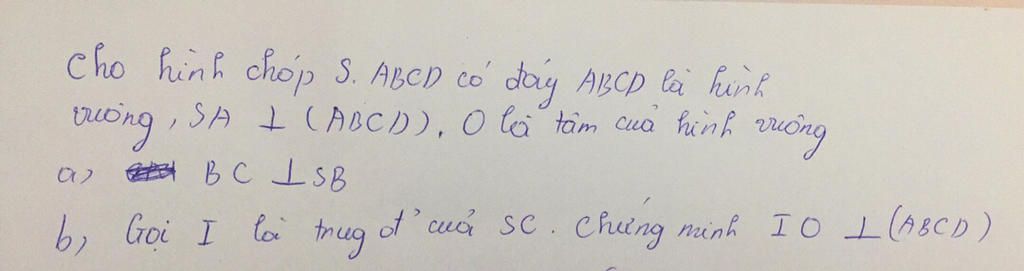 Cho hình chóp S. ABCD có đáy ABCD là hình
vuông, SA ⊥ (ABCD), O là tâm cuả hình vuông
a, BC ⊥ SB
b, Gọi I là trug đ' cuả SC. Chứng minh IO ⊥ (ABCD)